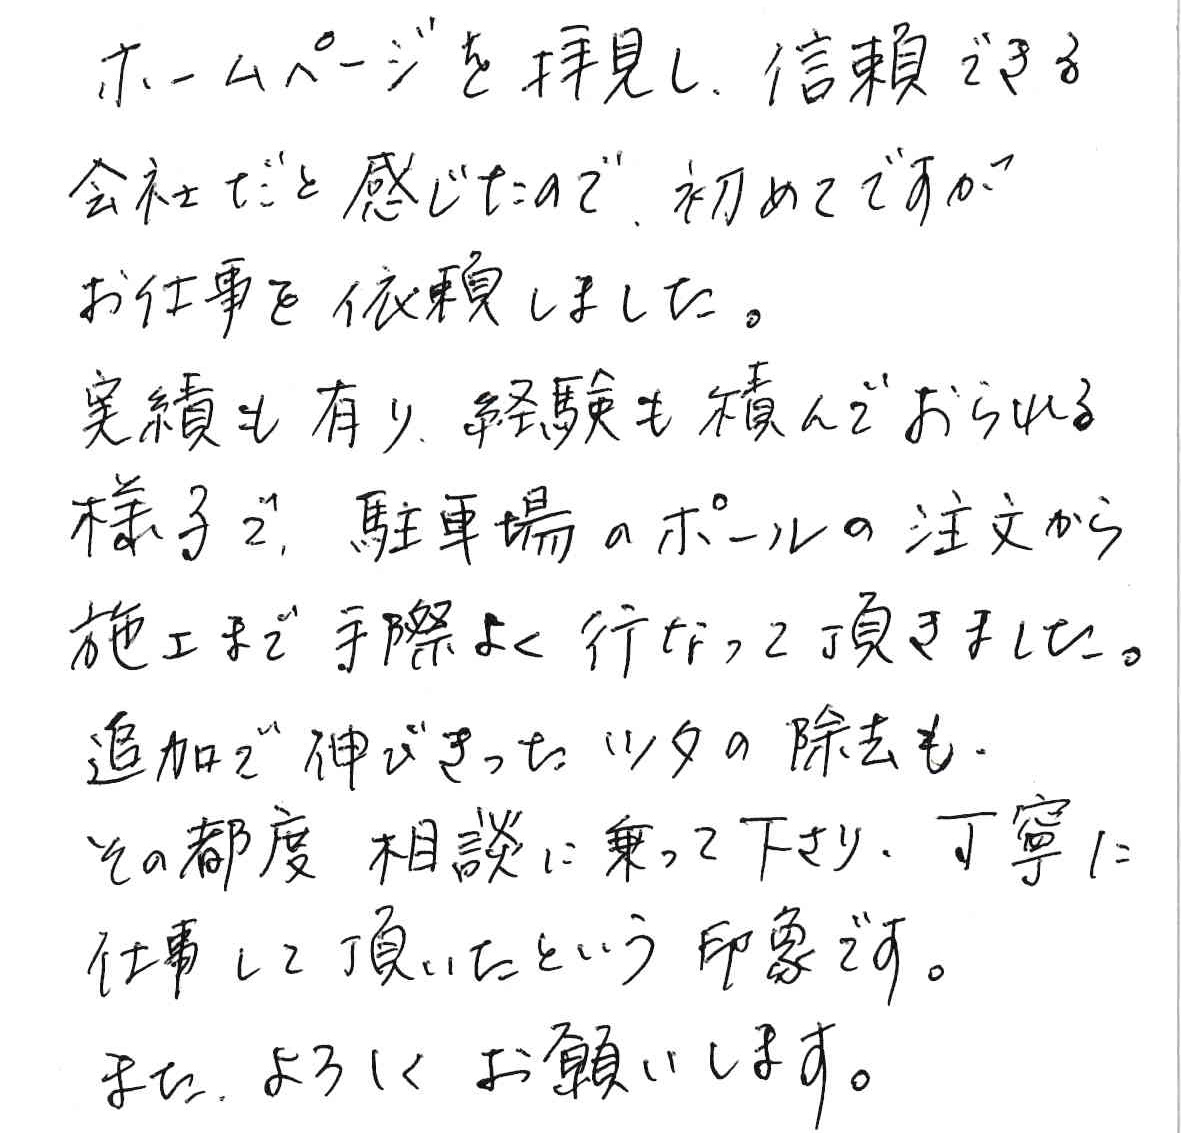 ホームページを拝見し、信頼できる
会社だと感じたので、初めてですが
お仕事を依頼しました。
実績も有り、経験も積んでおられる
様子で、駐車場のポールの注文から
施工まで手際よく行なって頂きました。
追加で伸びきったツタの除去も、
その都度相談に乗って下さり、丁寧に
仕事して頂いたという印象です。
また、よろしくお願いします。